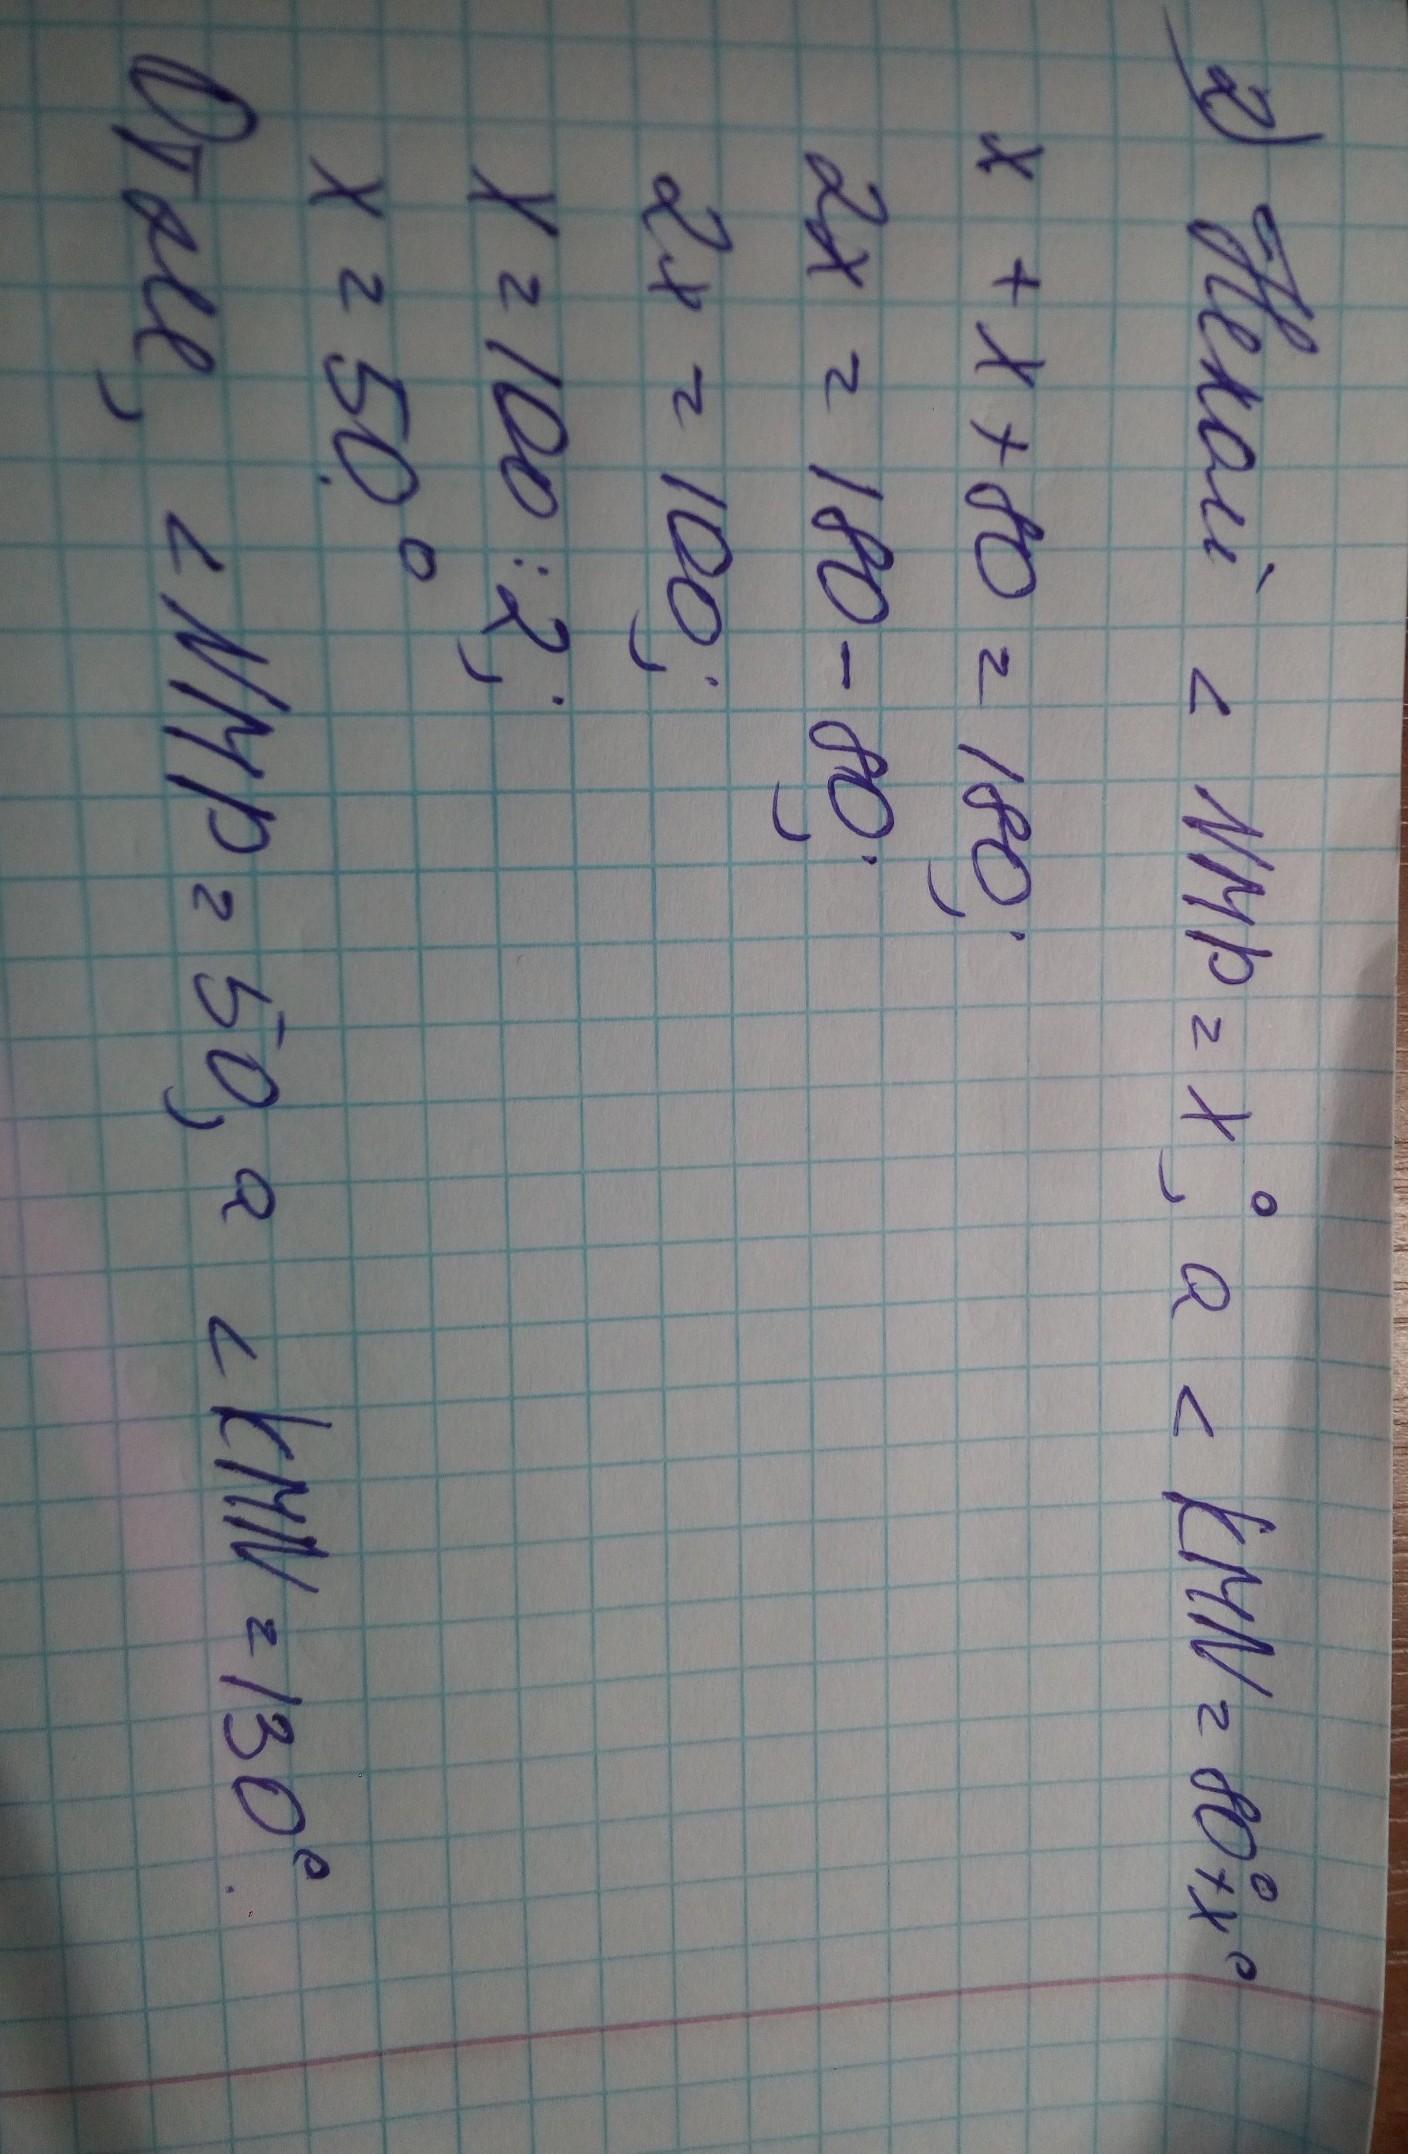 2) Нехай < NMP = x°, а < KMN = 80°+x°
x + x + 80 = 180;
2x = 180 - 80;
2x = 100;
x = 100 : 2;
x = 50°
Отже, < NMP = 50, а < KMN = 130°.